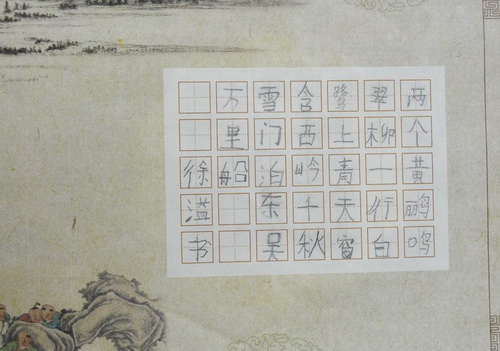 两个黄鹂鸣
翠柳一行白
鹭上青天窗
含西岭千秋
雪门泊东吴
万里船
徐溢书